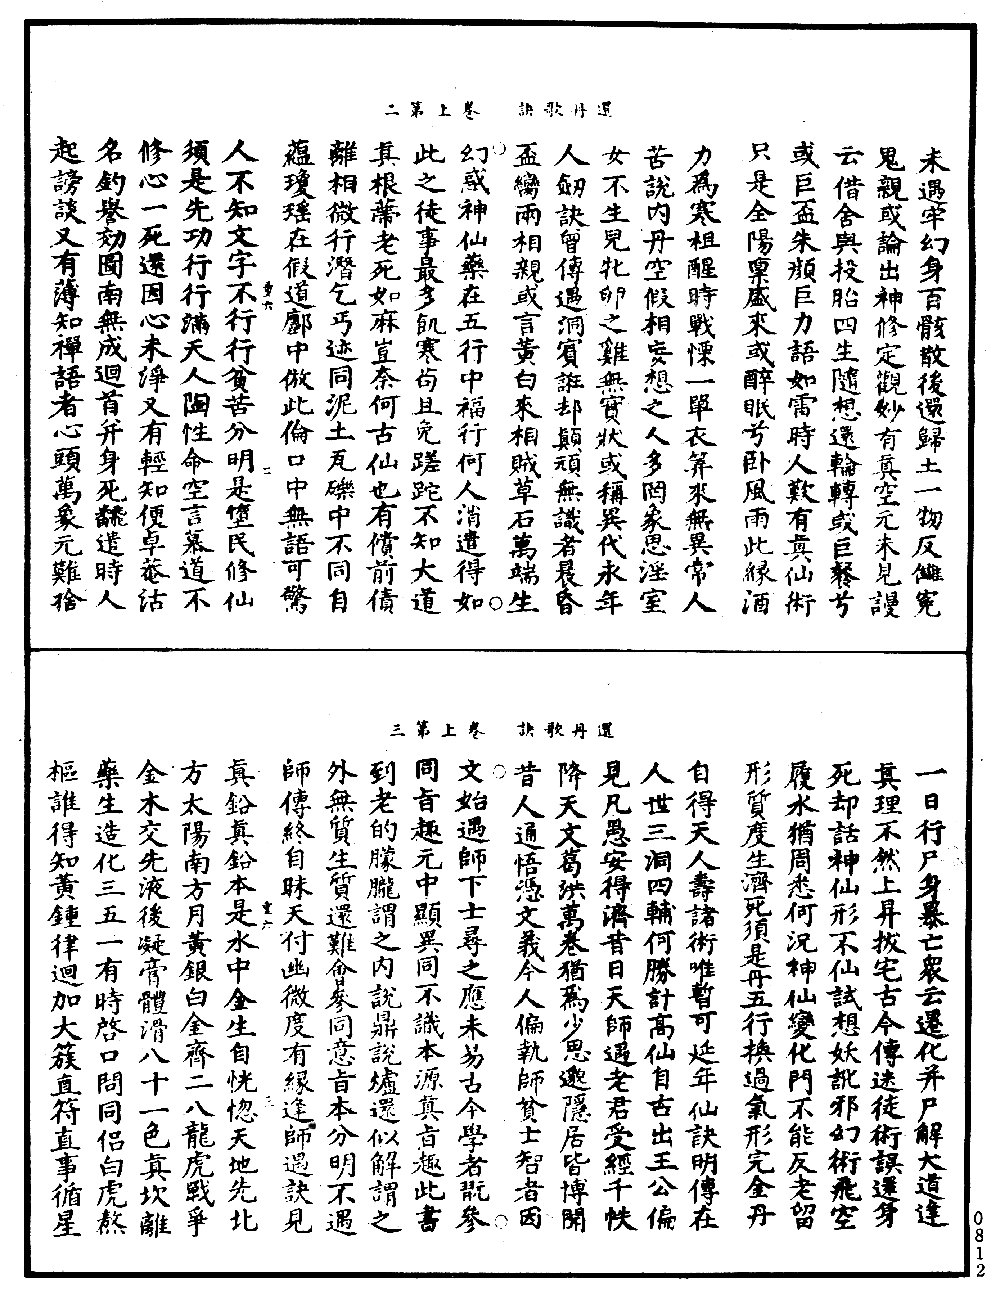 還丹歌訣　卷上第二
未遇牢幻身百骸散後還歸土一物反讎寃
鬼親或論出神修定觀妙有真空元未見謾
云借舍與投胎四生隨想還輪轉或巨餐兮
或巨盃朱頰巨力語如雷時人歎有真仙術
只是全陽稟盛來或醉眠兮卧風雨此緣酒
力為寒祖醒時戰慄一單衣筭來無異常人
苦說内丹空假相妄想之人多罔象思淫室
女不生兒牝卵之雞無實狀或稱異代永年
人劒訣曾傳遇洞賓誑却顛頑無識者晨昏
盃臠兩相親或言黃白來相賊草石萬端生
幻惑神仙藥在五行中福行何人消遣得如
此之徒事最多飢寒苟且免蹉跎不知大道
真根蔕老死如麻豈奈何古仙也有償前債
離相微行潛乞丐迹同泥土瓦礫中不同自
蘊瓊瑶在假道鄽中倣此倫口中無語可驚
人不知文字不行行貧苦分明是墮民修仙
須是先功行行滿天人陶性命空言慕道不
修心一死還因心未淨又有輕知便卓菴沽
名釣譽効圖南無成迴首并身死飜遣時人
起謗談又有薄知禪語者心頭萬象元難捨
還丹歌訣　卷上第三
一日行尸身暴亡衆云遷化并尸解大道違
真理不然上昇拔宅古今傳迷徒術誤還身
死却話神仙形不仙試想妖訛邪幻術飛空
履水猶周悉何況神仙變化門不能反老留
形質度生濟死須是丹五行換過氣形完金丹
自得天人壽諸術唯暫可延年仙訣明傳在
人世三洞四輔何勝計高仙自古出王公偏
見凡愚安得濟昔日天師遇老君受經千帙
降天文葛洪萬卷猶為少思邈隱居皆博聞
昔人通悟憑文義今人偏執師貧士智者因
文始遇師下士尋之應未易古今學者翫參
同旨趣元中顯異同不識本源真旨趣此書
到老的朦朧謂之内說鼎說爐還似解謂之
外無質生質還難會參同意旨本分明不遇
師傳終自昧天付幽微度有緣逢師遇訣見
真鉛真鉛本是水中金生自恍惚天地先北
方太陽南方月黃銀白金齊二八龍虎戰爭
金木交先液後凝膏體滑八十一色真坎離
藥生造化三五一有時啓口問同侣白虎熬
樞誰得知黃鍾律迴加大簇直符直事循星
0812